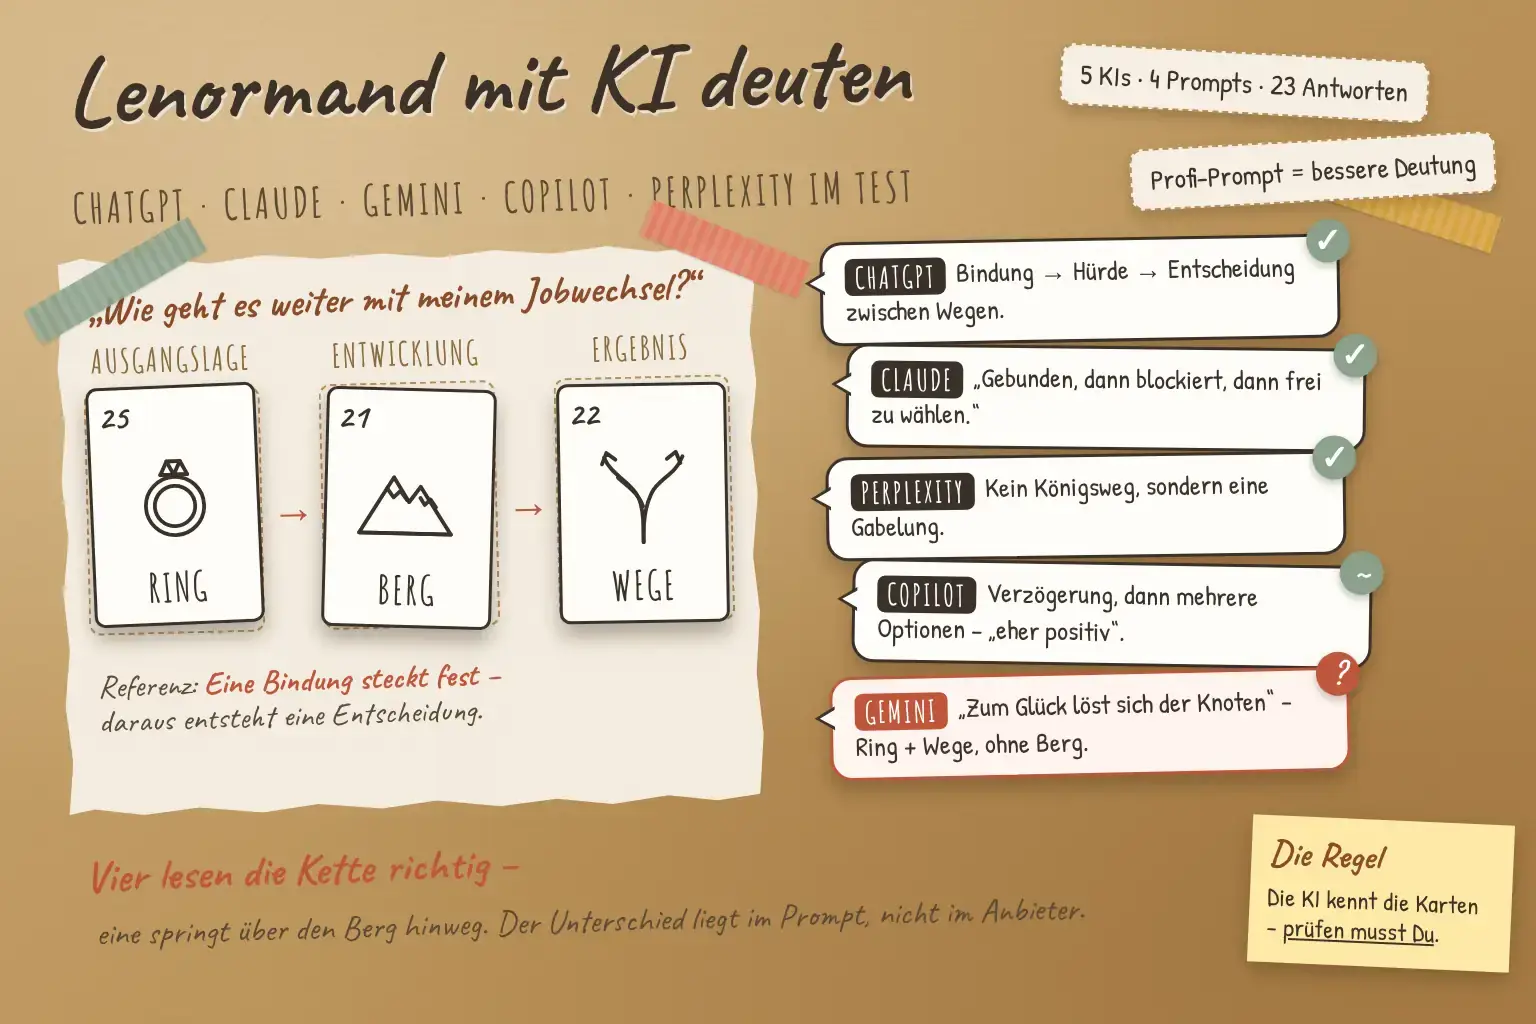 Lenormand mit KI deuten
CHATGPT · CLAUDE · GEMINI · COPILOT · PERPLEXITY IM TEST
5 KIs · 4 Prompts · 23 Antworten
Profi-Prompt = bessere Deutung
„Wie geht es weiter mit meinem Jobwechsel?“
AUSGANGSLAGE
ENTWICKLUNG
ERGEBNIS
25
RING
→
21
BERG
→
22
WEGE
Referenz: Eine Bindung steckt fest –
daraus entsteht eine Entscheidung.
CHATGPT Bindung → Hürde → Entscheidung
zwischen Wegen.
✓
CLAUDE „Gebunden, dann blockiert, dann frei
zu wählen.“
✓
PERPLEXITY Kein Königsweg, sondern eine
Gabelung.
✓
COPILOT Verzögerung, dann mehrere
Optionen – „eher positiv“.
~
GEMINI „Zum Glück löst sich der Knoten“ –
Ring + Wege, ohne Berg.
?
Vier lesen die Kette richtig –
eine springt über den Berg hinweg. Der Unterschied liegt im Prompt, nicht im Anbieter.
Die Regel
Die KI kennt die Karten
– prüfen musst Du.